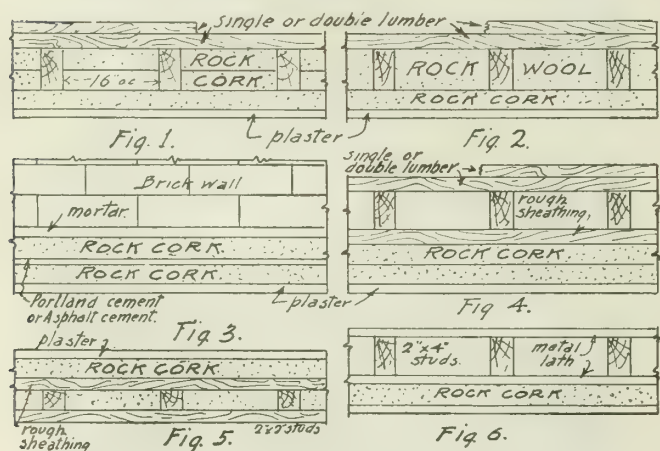 single or double lumber
ROCK
CORK
16 oc
plaster
Fig. 1.
ROCK WOOL
ROCK CORK
Fig. 2
Brick wall
mortar.
ROCK CORK
ROCK CORK
Portland cement
or Asphalt cement.
plaster
Fig. 3
single or
double lumber
rough
sheathing,
ROCK CORK
Fig 4.
plaster
ROCK CORK
rough
sheathing
Fig. 5.
2"x2" studs
2"x4"
studs.
metal
lath
ROCK CORK
Fig 6.